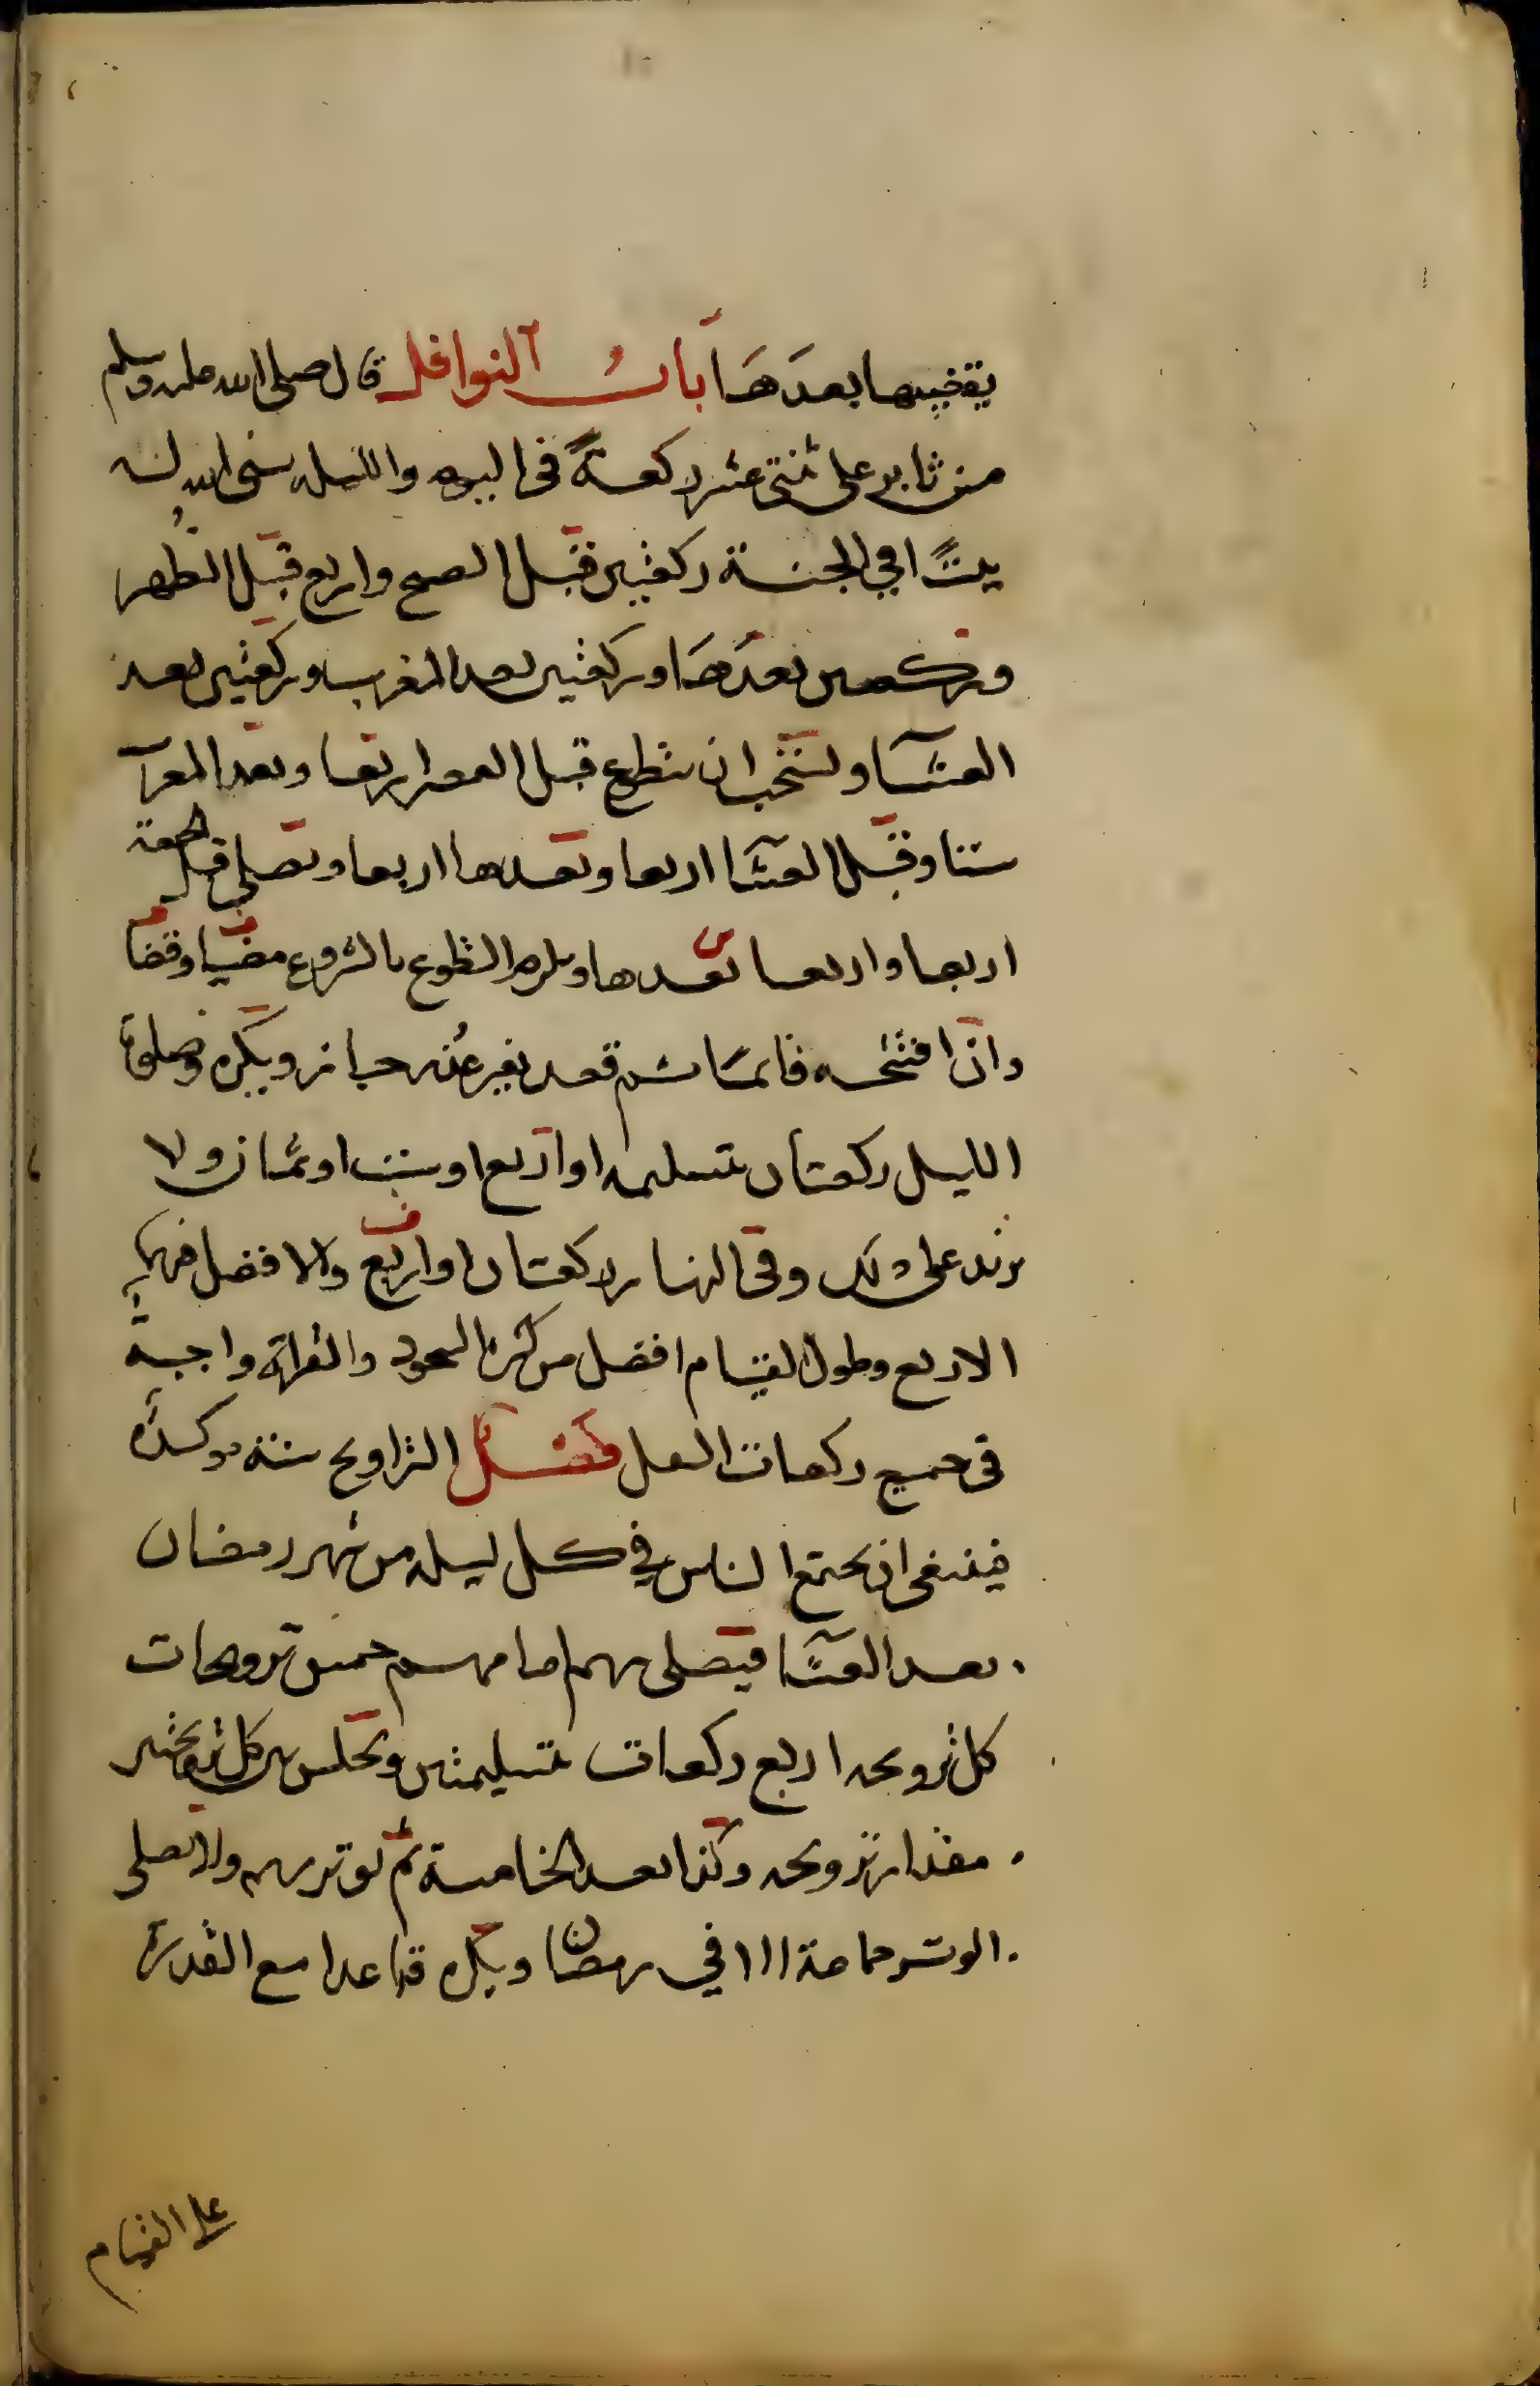 يقضيها بعدها باب النوافل قال صلى الله عليه وسلم
من ثابر على ثنتى عشر ركعة في اليوم والليله بنى الله له
بيتا في الجنة ركعتين قبل الصبح واربع قبل الظهر
وركعتين بعدها وركعتين بعد المغرب وركعتين بعد
العشا ويستحب ان يتطوع قبل العصر اربعا وبعد المغرب
ستا وقبل العشا اربعا وبعدها اربعا ويصلي قبل الجمعة
اربعا واربعا بعدها ويلزم التطوع بالشروع مضيا وقضا
واذا افتتحه قائما ثم قعد بغير عذر جاز ويكره وصلوة
الليل ركعتان بتسليمه او اربع او ست او ثمان ولا
يزيد على ذلك وفي النهار ركعتان او اربع والافضل فيهما
الاربع وطول القيام افضل من كثرة السجود والقراة واجبة
في جميع ركعات النفل فصل التراويح سنة موكدة
فينبغي ان يجتمع الناس في كل ليله من شهر رمضان
بعد العشا فيصلى بهم امامهم خمس ترويحات
كل ترويحه اربع ركعات بتسليمتين ويجلس بين كل ترويحتين
مقدار ترويحه وكذا بعد الخامسة ثم يوتر بهم ولا يصلى
الوتر جماعة الا في رمضان ويكره قاعدا مع القدرة
على القيام